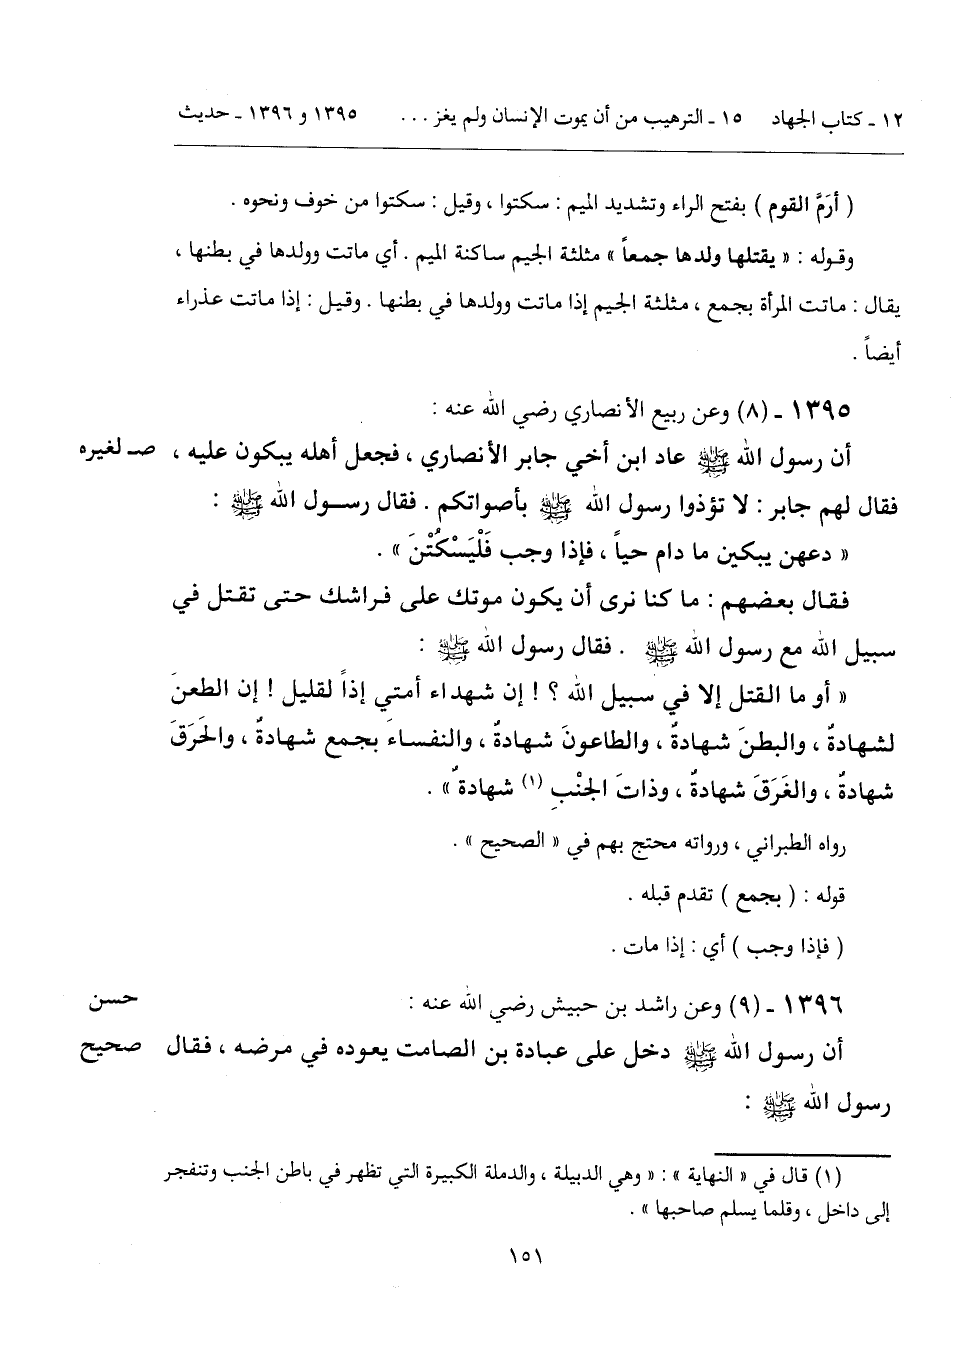 ١٢ ـ كتاب الجهاد ١٥ ـ الترهيب من أن يموت الإنسان ولم يغز . . . ١٣٩٥ و ١٣٩٦ ـ حديث
( أرَمَّ القوم ) بفتح الراء وتشديد الميم : سكتوا ، وقيل : سكتوا من خوف ونحوه .
وقوله : « يقتلها ولدها جمعاً » مثلثة الجيم ساكنة الميم . أي ماتت وولدها في بطنها ،
يقال : ماتت المرأة بجمع ، مثلثة الجيم إذا ماتت وولدها في بطنها . وقيل : إذا ماتت عذراء
أيضاً .
١٣٩٥ ـ (٨) وعن ربيع الأنصاري رضي الله عنه :
أن رسول الله ﷺ عاد ابن أخي جابر الأنصاري ، فجعل أهله يبكون عليه ، صـ لغيره
فقال لهم جابر : لا تؤذوا رسول الله ﷺ بأصواتكم . فقال رسول الله ﷺ :
« دعهن يبكين ما دام حياً ، فإذا وجب فَلْيَسْكُتْنَ » .
فقال بعضهم : ما كنا نرى أن يكون موتك على فراشك حتى تقتل في
سبيل الله مع رسول الله ﷺ . فقال رسول الله ﷺ :
« أو ما القتل إلا في سبيل الله ؟ ! إن شهداء أمتي إذاً لقليل ! إن الطعنَ
لشهادةٌ ، والبطنَ شهادةٌ ، والطاعونَ شهادةٌ ، والنفساءَ بجمع شهادةٌ ، والحَرَقَ
شهادةٌ ، والغَرَقَ شهادةٌ ، وذاتَ الجنْبِ (١) شهادةٌ » .
رواه الطبراني ، ورواته محتج بهم في « الصحيح » .
قوله : ( بجمع ) تقدم قبله .
( فإذا وجب ) أي : إذا مات .
١٣٩٦ ـ (٩) وعن راشد بن حبيش رضي الله عنه : حسن
أن رسول الله ﷺ دخل على عبادة بن الصامت يعوده في مرضه ، فقال صحيح
رسول الله ﷺ :
(١) قال في « النهاية » : « وهي الدبيلة ، والدملة الكبيرة التي تظهر في باطن الجنب وتنفجر
إلى داخل ، وقلما يسلم صاحبها » .
١٥١